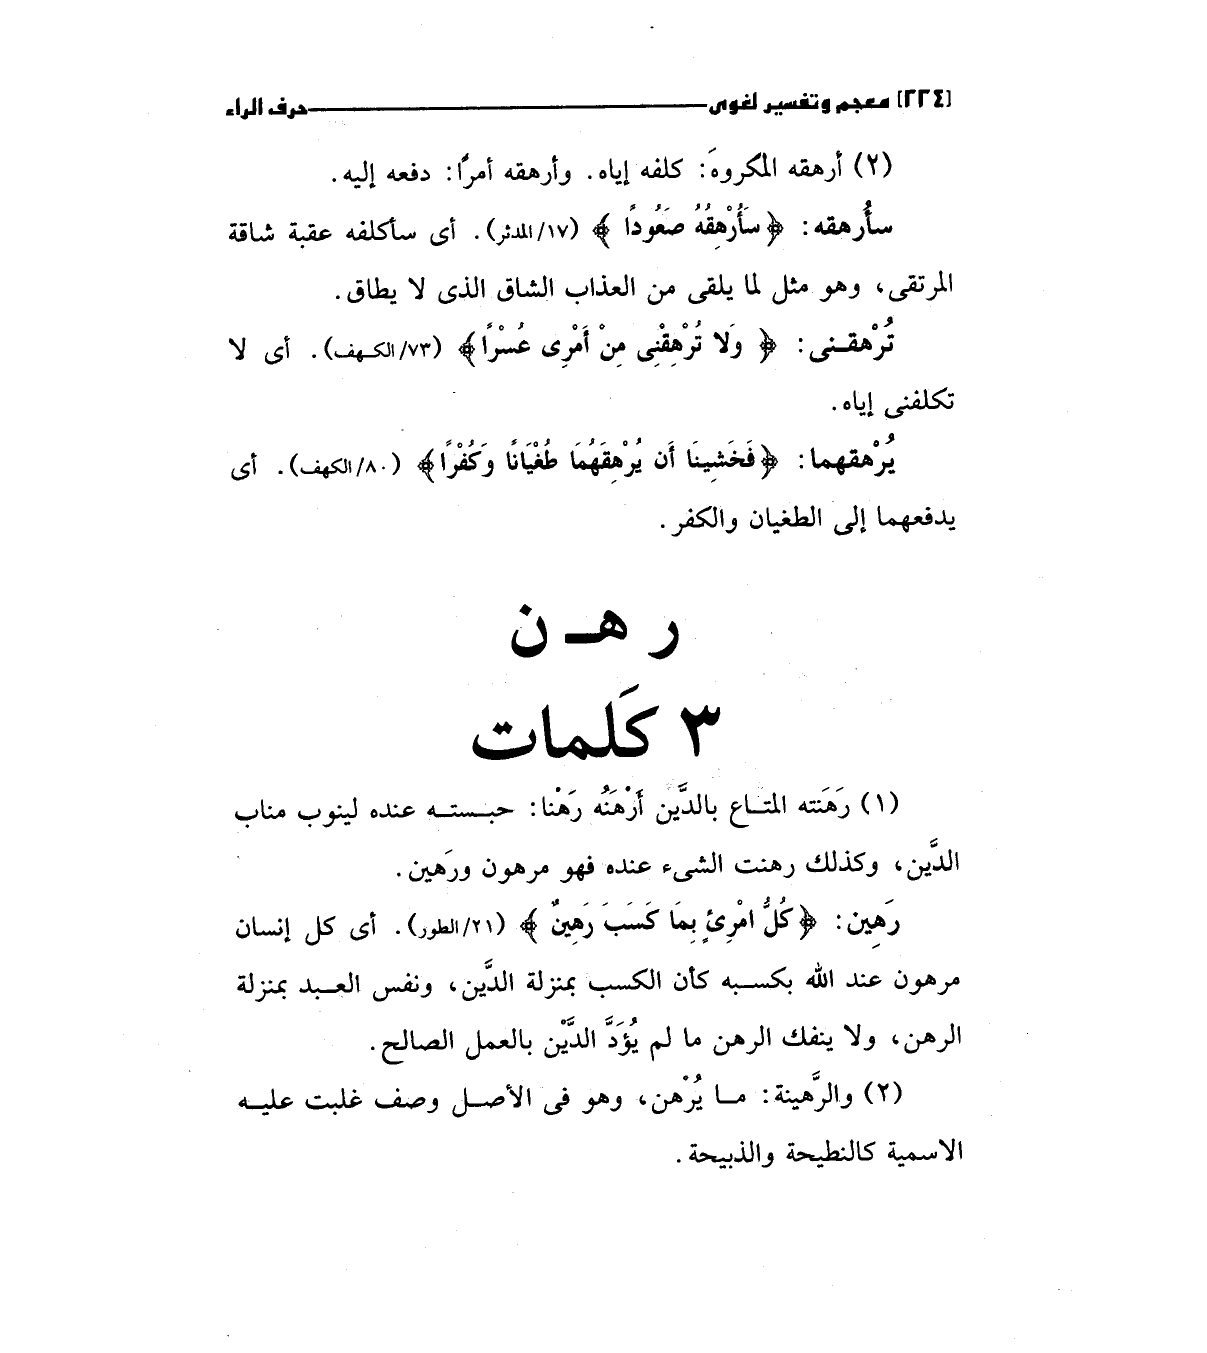 [٢٢٤] معجم وتفسير لغوى حرف الراء
(٢) أرهقه المكروهَ: كلفه إياه. وأرهقه أمرًا: دفعه إليه.
سأُرهقه: ﴿سَأُرْهِقُهُ صَعُودًا ﴾ (١٧/المدثر). أى سأكلفه عقبة شاقة
المرتقى، وهو مثل لما يلقى من العذاب الشاق الذى لا يطاق.
تُرْهقـنى: ﴿ وَلا تُرْهِقْنِى مِنْ أَمْرِى عُسْرًا﴾ (٧٣/الكـهف). أى لا
تكلفنى إياه.
يُرْهقهما: ﴿فَخَشِينَا أَن يُرْهِقَهُمَا طُغْيَانًا وَكُفْرًا﴾ (٨٠/الكهف). أى
يدفعهما إلى الطغيان والكفر.
ر هـ ن
٣ كَلمات
(١) رَهَنته المتـاع بالدَّين أَرْهَنُه رَهْنا: حبـستـه عنده لينوب مناب
الدَّين، وكذلك رهنت الشىء عنده فهو مرهون ورَهين.
رَهِين: ﴿كُلُّ امْرِئٍ بِمَا كَسَبَ رَهِينٌ ﴾ (٢١/الطور). أى كل إنسان
مرهون عند الله بكسـبه كأن الكسب بمنزلة الدَّين، ونفس العـبد بمنزلة
الرهن، ولا ينفك الرهن ما لم يُؤَدَّ الدَّيْن بالعمل الصالح.
(٢) والرَّهينة: مـا يُرْهن، وهو فى الأصـل وصف غلبت عليـه
الاسمية كالنطيحة والذبيحة.